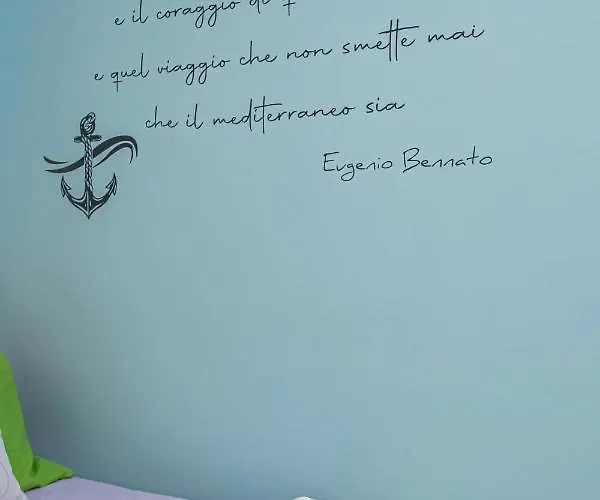 e il coraggio di
e quel viaggio che non smette mai
che il mediterraneo sia
Eugenio Bennato